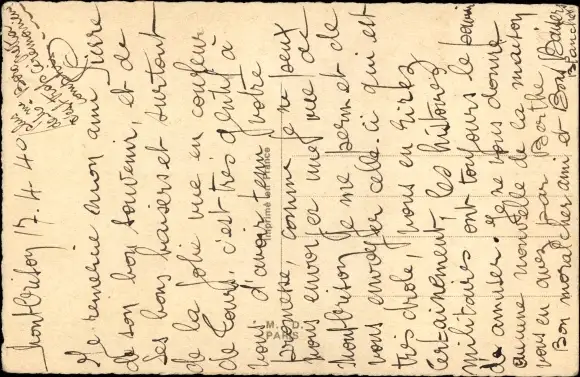 Montbrison 17.4.40
Je remercie mon ami Pierre
de son bon souvenir, et de
ses bons baisers et surtout
de la jolie vue en couleur
de Tours, c'est très gentil à
vous d'avoir tenu votre
promesse, comme je ne peux
vous envoyer une vue de
Montbrison je me permet de
vous envoyer celle-ci qui est
très drole, vous en rirez
certainement, les histoires
militaires ont toujours le
de amuser. Je ne vous donne
aucune nouvelle de la maison
vous en avez par Berthe
Bon moral cher ami et Bons Baisers
Imprimé en France
M. D.
PARIS